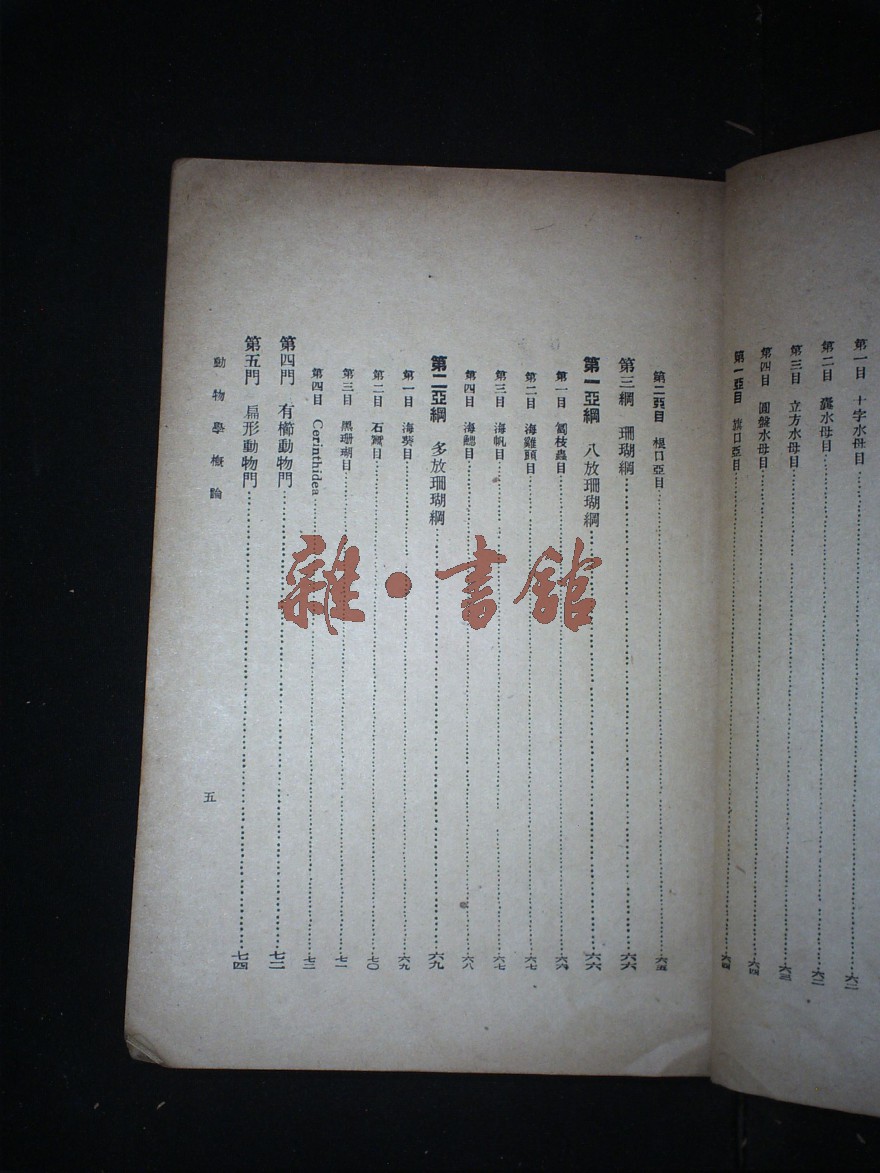 第一目 十字水母目 六二
第二目 囊水母目 六二
第三目 立方水母目 六三
第四目 圓盤水母目 六四
第一亞目 旗口亞目 六四
第二亞目 根口亞目 六五
第三綱 珊瑚綱 六六
第一亞綱 八放珊瑚綱 六六
第一目 匐枝蟲目 六六
第二目 海雞頭目 六七
第三目 海帆目 六七
第四目 海鰓目 六八
第二亞綱 多放珊瑚綱 六九
第一目 海葵目 六九
第二目 石蠶目 七〇
第三目 黑珊瑚目 七一
第四目 Cerinthidea 七二
第四門 有櫛動物門 七二
第五門 扁形動物門 七四
動物學概論
五
雜·書館